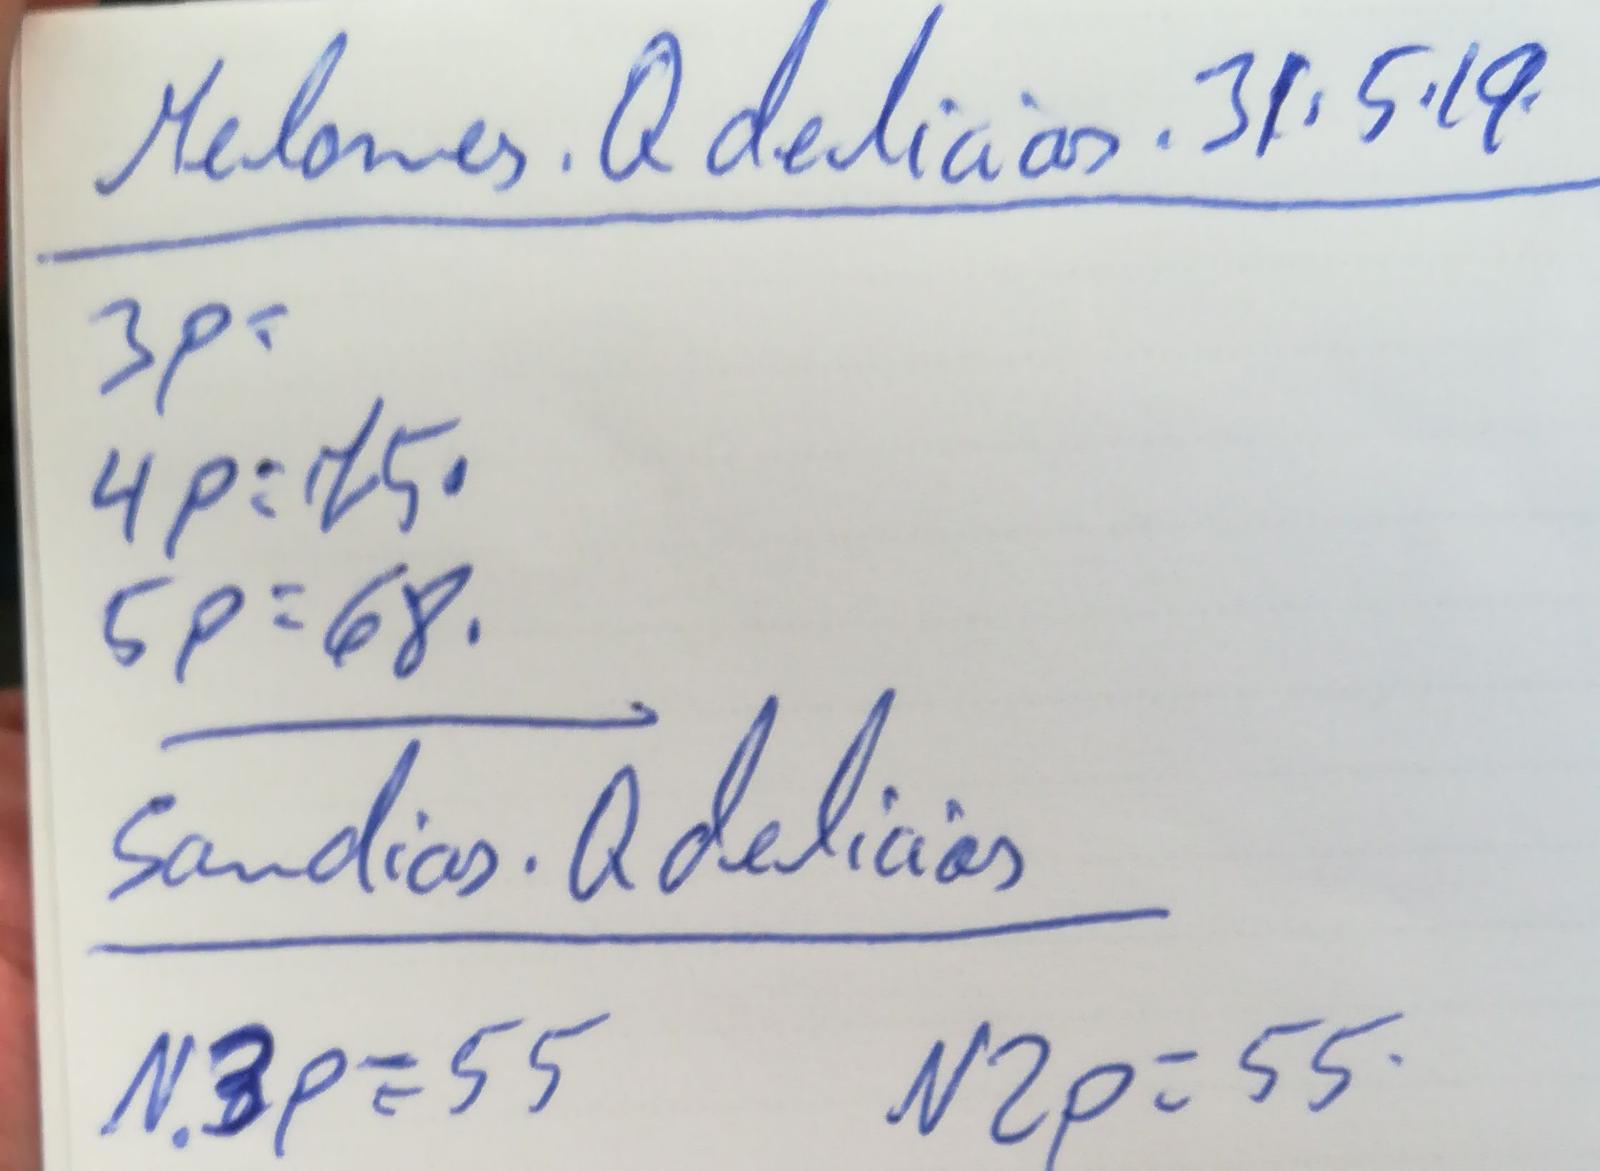 Melones. Q delicias. 31.5.19.
3p=
4p=75.
5p=68.
Sandias. Q delicias
N.3p=55 N2p=55.